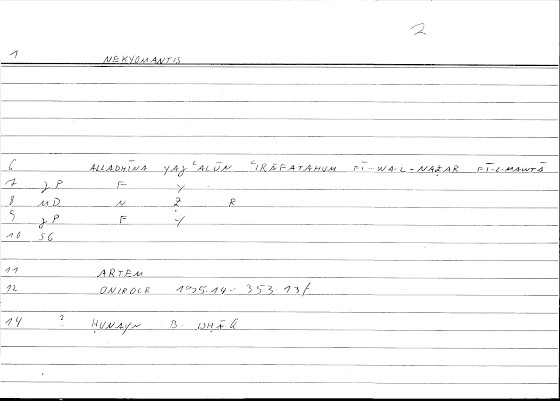 2
1 NEKYOMANTIS
6 ALLADHĪNA YAJʿALŪN ʿIRĀFATAHUM FĪ-WA-L-NAẒAR FĪ-L-MAWTĀ
7 gP F Y
8 MD N Ẓ R
9 gP F Y
10 SG
11 ARTEM
12 ONIROCR 1975.14- 353.13f
14 ? ḤUNAYN B. ISḤĀQ